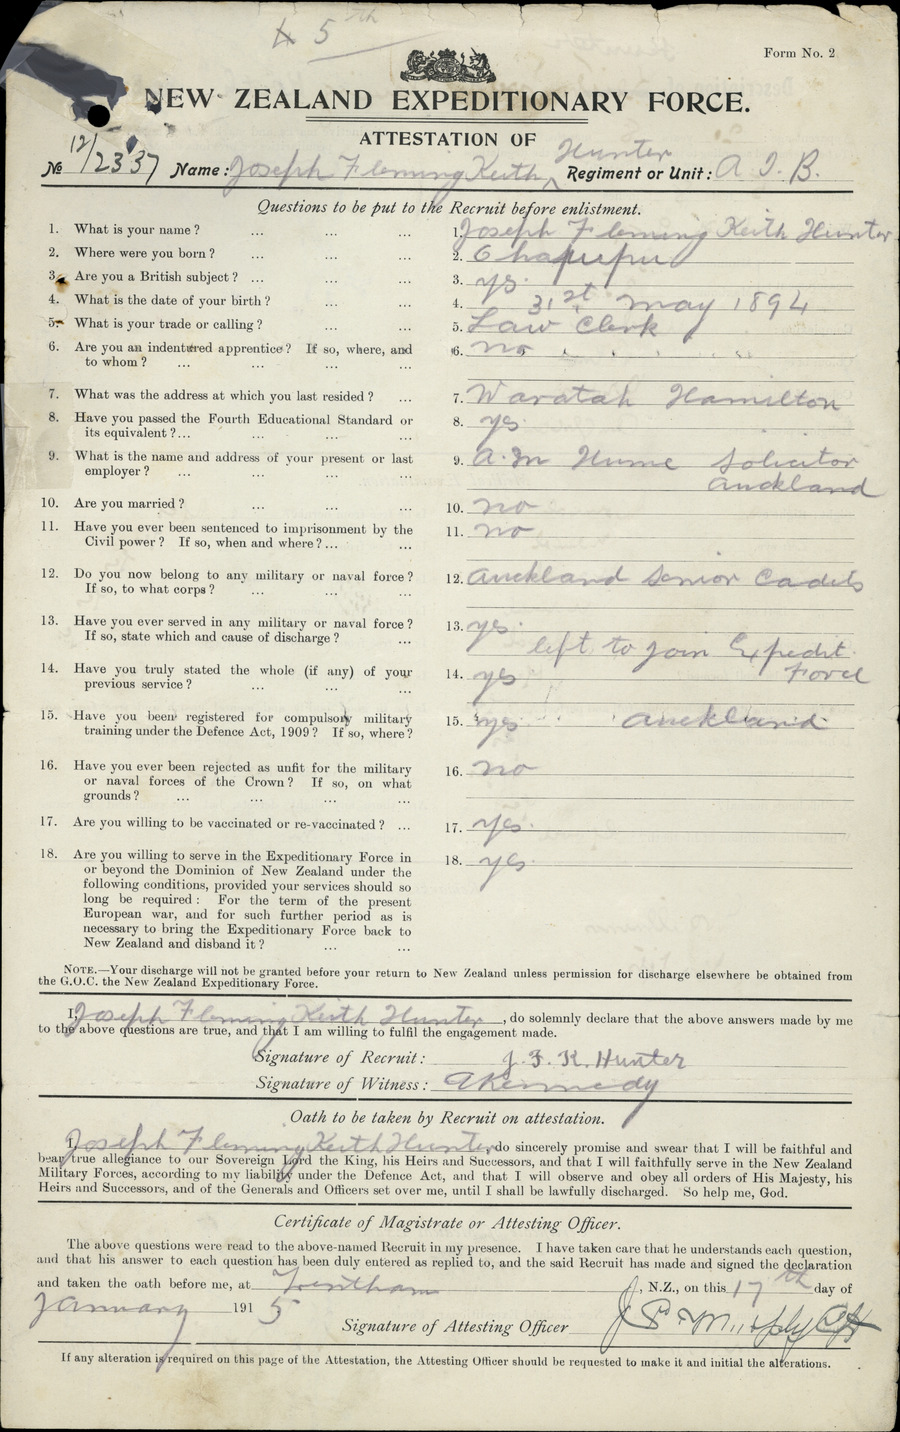 5th
Form No. 2
NEW ZEALAND EXPEDITIONARY FORCE.
ATTESTATION OF
No 12/2337 Name: Joseph Fleming Keith Hunter Regiment or Unit: A I B.
Questions to be put to the Recruit before enlistment.
1. What is your name? ... ... ... 1. Joseph Fleming Keith Hunter
2. Where were you born? ... ... ... 2. Ohaupu
3. Are you a British subject? ... ... ... 3. yes
4. What is the date of your birth? ... ... 4. 31st May 1894
5. What is your trade or calling? ... ... 5. Law Clerk
6. Are you an indentured apprentice? If so, where, and 6. no
to whom? ... ... ... ...
7. What was the address at which you last resided? ... 7. Waratah Hamilton
8. Have you passed the Fourth Educational Standard or 8. yes
its equivalent?... ... ... ...
9. What is the name and address of your present or last 9. A. M Hume Solicitor
employer? ... ... ... ... Auckland
10. Are you married? ... ... ... 10. no
11. Have you ever been sentenced to imprisonment by the 11. no
Civil power? If so, when and where?... ...
12. Do you now belong to any military or naval force? 12. Auckland Senior Cadets
If so, to what corps? ... ... ...
13. Have you ever served in any military or naval force? 13. yes.
If so, state which and cause of discharge? ... left to join Expedit. Force
14. Have you truly stated the whole (if any) of your 14. yes
previous service? ... ... ...
15. Have you been registered for compulsory military 15. yes Auckland
training under the Defence Act, 1909? If so, where?
16. Have you ever been rejected as unfit for the military 16. no
or naval forces of the Crown? If so, on what
grounds? ... ... ... ...
17. Are you willing to be vaccinated or re-vaccinated? ... 17. yes.
18. Are you willing to serve in the Expeditionary Force in 18. yes.
or beyond the Dominion of New Zealand under the
following conditions, provided your services should so
long be required: For the term of the present
European war, and for such further period as is
necessary to bring the Expeditionary Force back to
New Zealand and disband it? ... ...
NOTE.—Your discharge will not be granted before your return to New Zealand unless permission for discharge elsewhere be obtained from
the G.O.C. the New Zealand Expeditionary Force.
I, Joseph Fleming Keith Hunter, do solemnly declare that the above answers made by me
to the above questions are true, and that I am willing to fulfil the engagement made.
Signature of Recruit: J. F. K. Hunter
Signature of Witness: A Kennedy
Oath to be taken by Recruit on attestation.
I, Joseph Fleming Keith Hunter do sincerely promise and swear that I will be faithful and
bear true allegiance to our Sovereign Lord the King, his Heirs and Successors, and that I will faithfully serve in the New Zealand
Military Forces, according to my liability under the Defence Act, and that I will observe and obey all orders of His Majesty, his
Heirs and Successors, and of the Generals and Officers set over me, until I shall be lawfully discharged. So help me, God.
Certificate of Magistrate or Attesting Officer.
The above questions were read to the above-named Recruit in my presence. I have taken care that he understands each question,
and that his answer to each question has been duly entered as replied to, and the said Recruit has made and signed the declaration
and taken the oath before me, at Trentham, N.Z., on this 17th day of
January 1915
Signature of Attesting Officer
If any alteration is required on this page of the Attestation, the Attesting Officer should be requested to make it and initial the alterations.